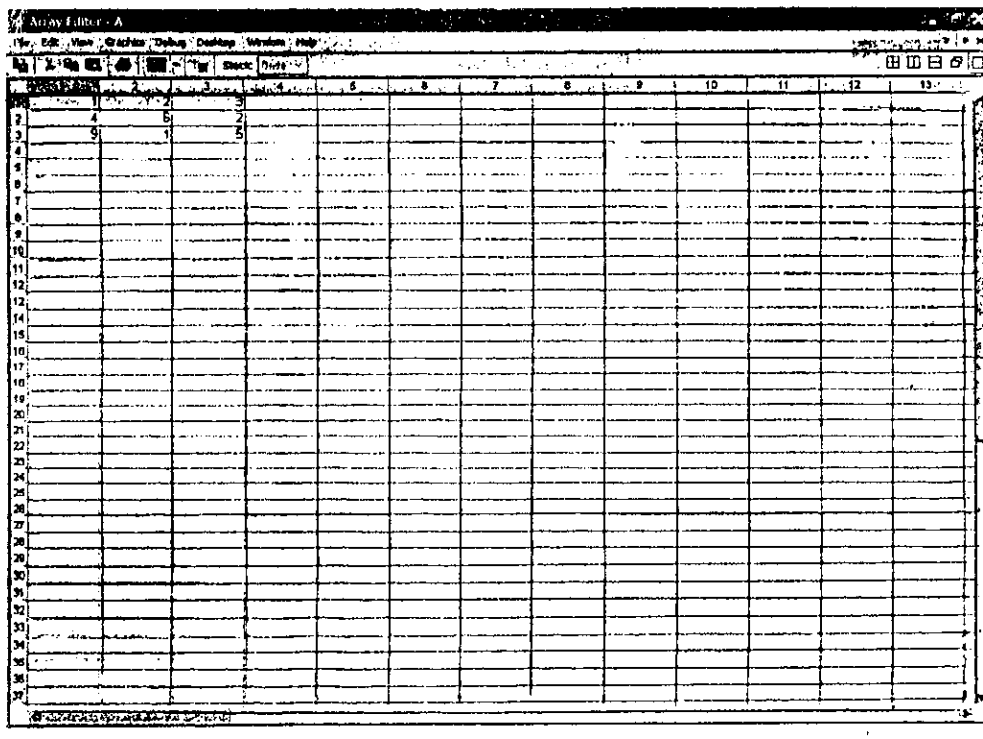 Array Editor - A
File Edit View Graphics Debug Desktop Window Help
Stack: Base
1 2 3 4 5 6 7 8 9 10 11 12 13
1 1 2 3
2 4 6 2
3 9 1 5
4
5
6
7
8
9
10
11
12
13
14
15
16
17
18
19
20
21
22
23
24
25
26
27
28
29
30
31
32
33
34
35
36
37